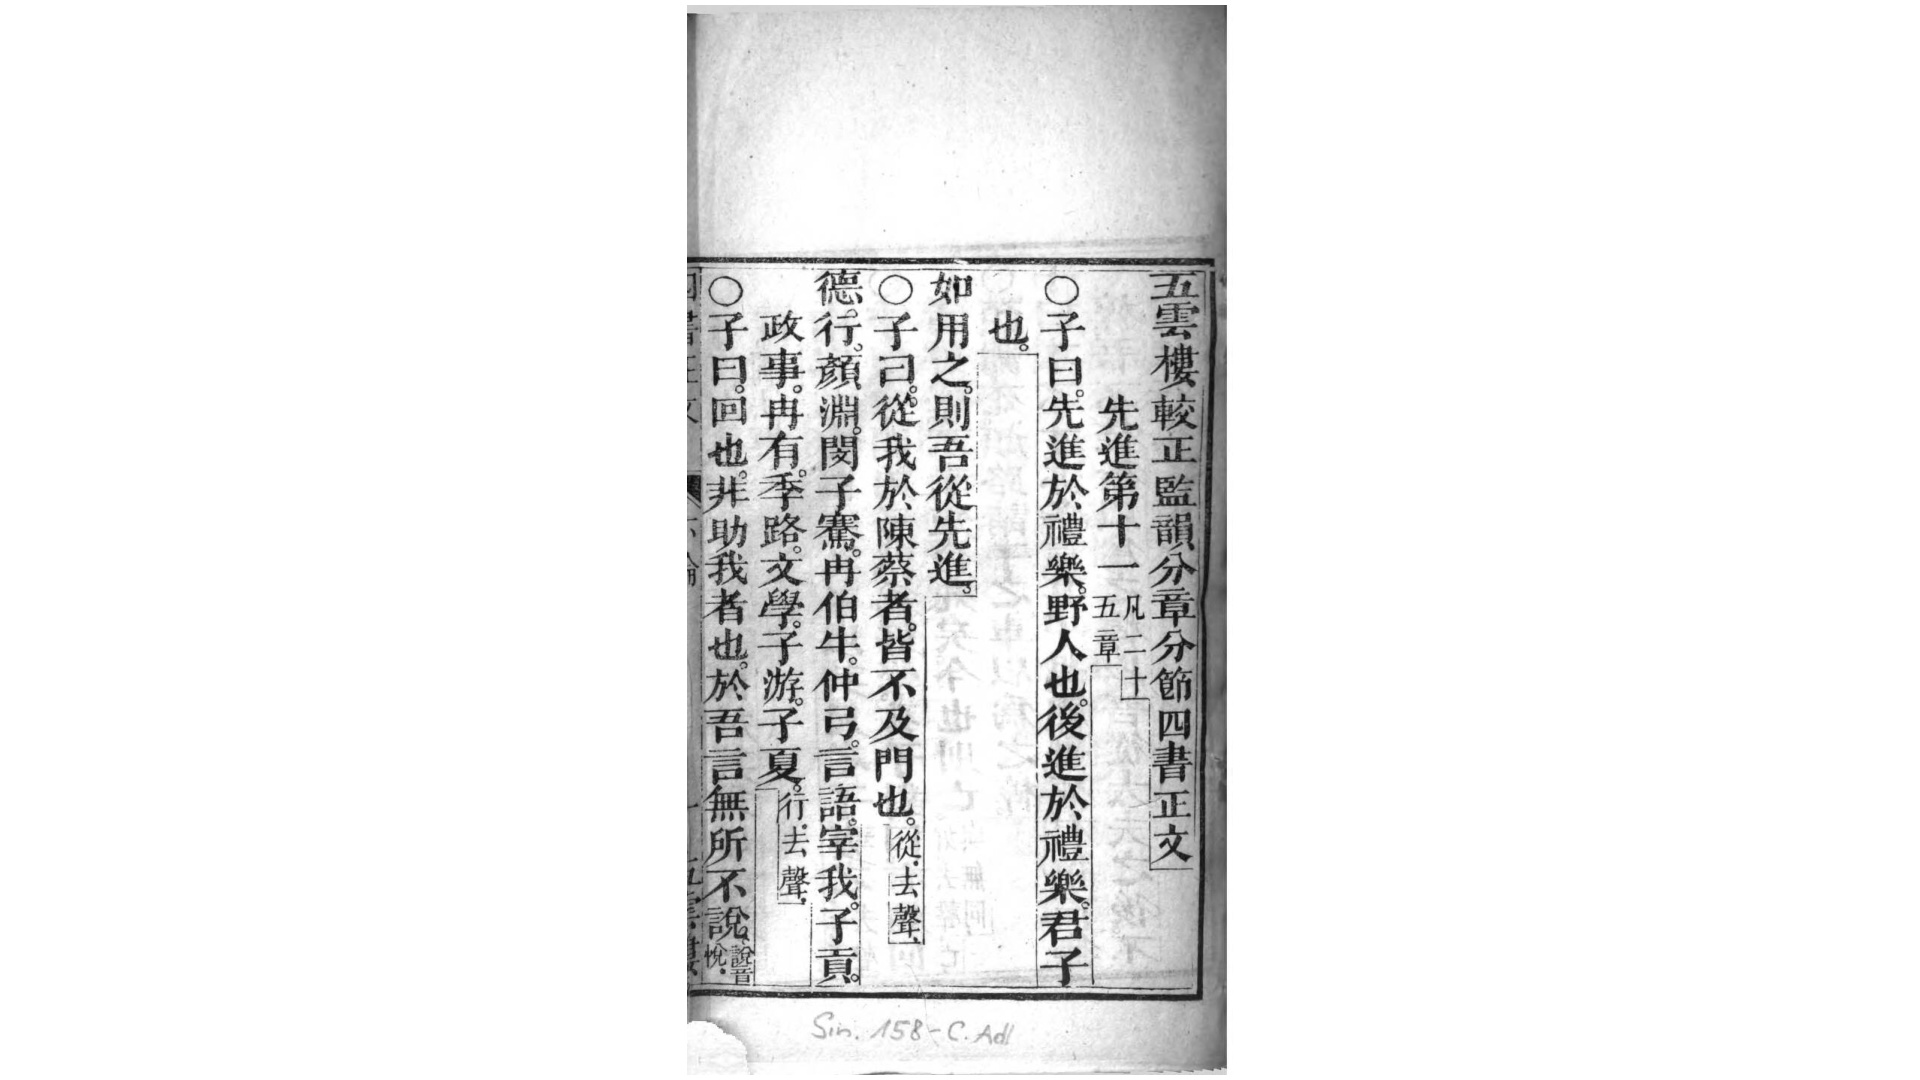 五雲樓較正監韻分章分節四書正文
先進第十一凡二十五章
○子曰。先進於禮樂。野人也。後進於禮樂。君子
也。
如用之。則吾從先進。
○子曰。從我於陳蔡者。皆不及門也。從。去聲、
德。行。顏淵。閔子騫。冉伯牛。仲弓。言語。宰我。子貢。
政事。冉有。季路。文學。子游。子夏。行。去聲、
○子曰。回也。非助我者也。於吾言無所不說。說音悅。
Sin. 158-C. Adl